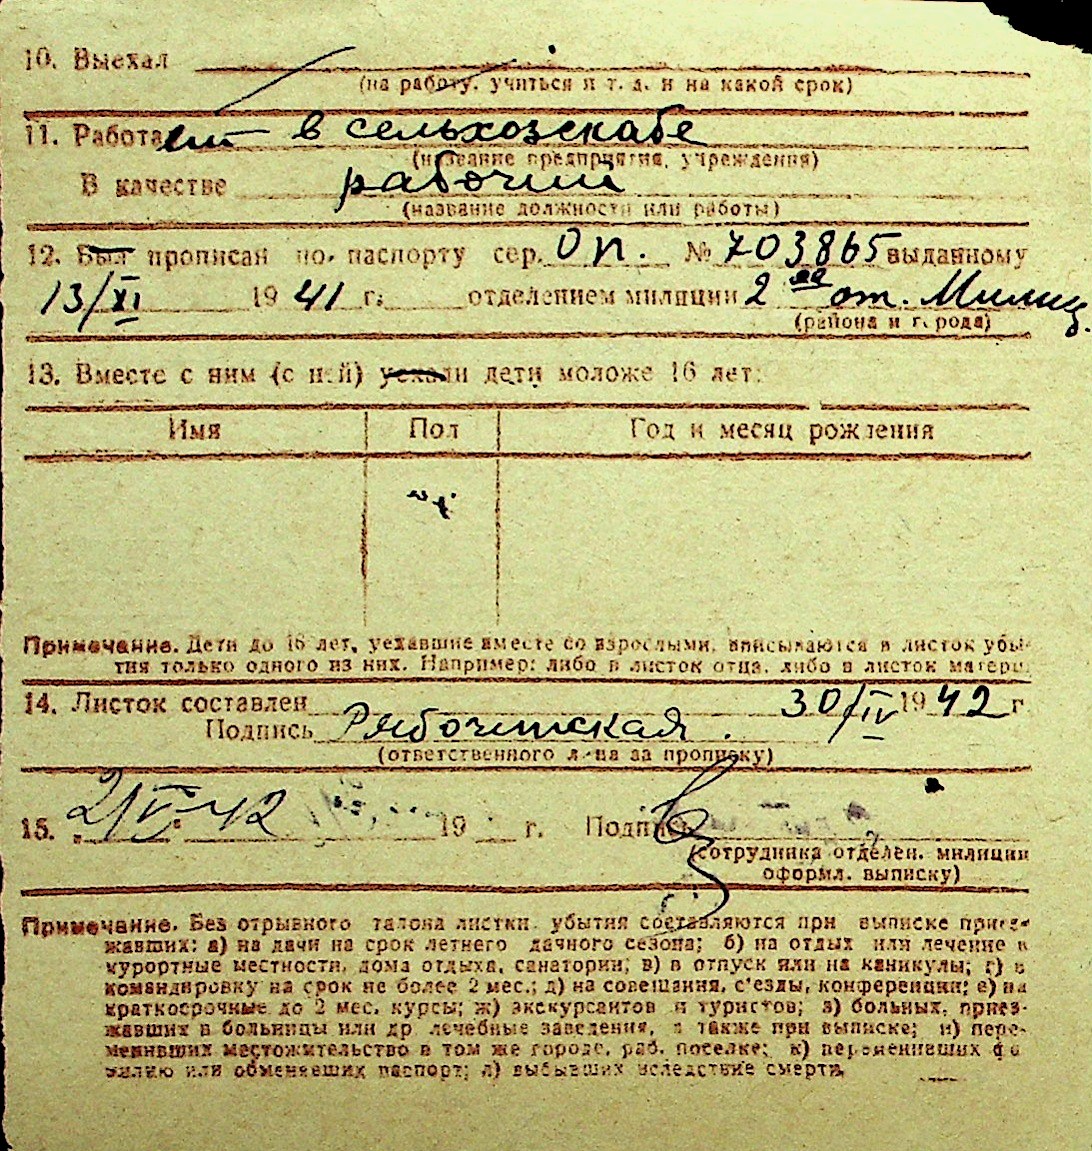 10. Выехал
(на работу, учиться и т. д. и на какой срок)
11. Работает в сельхозснабе
(название предприятия, учреждения)
В качестве рабочий
(название должности или работы)
12. Был прописан по паспорту сер. ОП. № 703865 выданному
13/XI 1941 г. отделением милиции 2ое от. Милиц.
(района и города)
13. Вместе с ним (с ней) уехали дети моложе 16 лет:
Имя Пол Год и месяц рождения
Примечание. Дети до 16 лет, уехавшие вместе со взрослыми, вписываются в листок убы-
тия только одного из них. Например: либо в листок отца, либо в листок матери.
14. Листок составлен 30/IV 1942 г.
Подпись
(ответственного лица за прописку)
15. 2/V-42 19 г. Подпись
(сотрудника отделен. милиции
оформл. выписку)
Примечание. Без отрывного талона листки убытия составляются при выписке приез-
жавших: а) на дачи на срок летнего дачного сезона; б) на отдых или лечение в
курортные местности, дома отдыха, санатории; в) в отпуск или на каникулы; г) в
командировку на срок не более 2 мес.; д) на совещания, с'езды, конференции; е) на
краткосрочные до 2 мес. курсы; ж) экскурсантов и туристов; з) больных, приез-
жавших в больницы или др лечебные заведения, а также при выписке; и) пере-
менивших местожительство в том же городе, раб. поселке; к) переменивших фа
милию или обменявших паспорт; л) выбывших вследствие смерти.